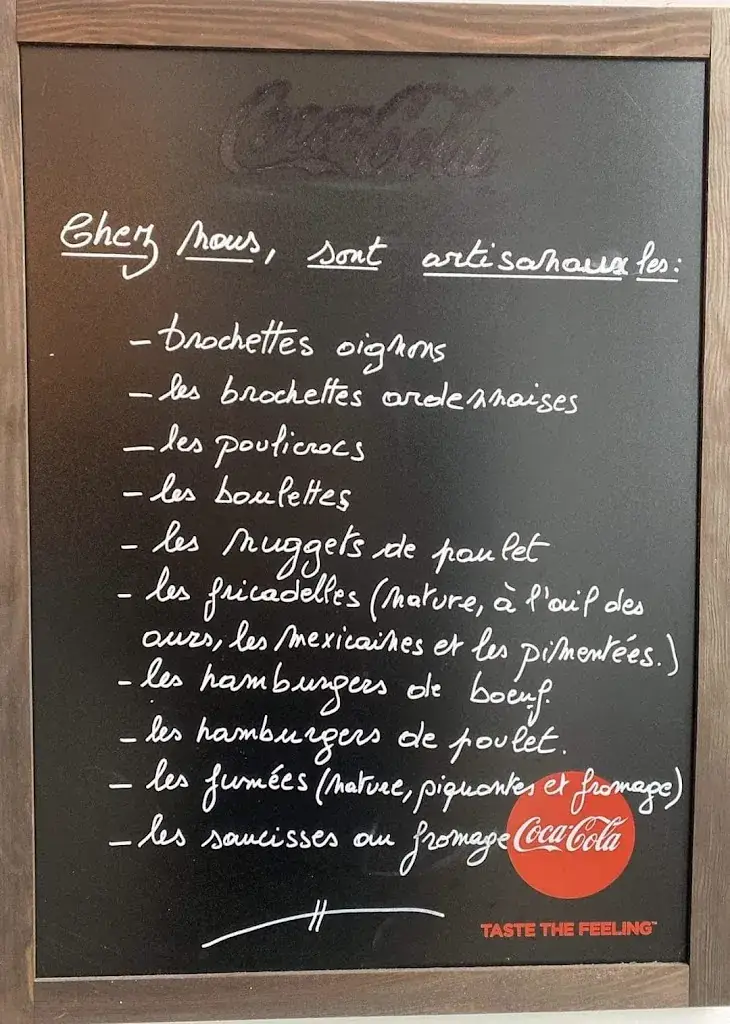 Coca-Cola
Chez nous, sont artisanaux les:
- brochettes oignons
- les brochettes ardennaises
- les poulicrocs
- les boulettes
- les nuggets de poulet
- les fricadelles (nature, à l'ail des
ours, les mexicaines et les pimentées.)
- les hamburgers de boeuf.
- les hamburgers de poulet.
- les fumées (nature, piquantes et fromage)
- les saucisses au fromage
Coca-Cola
TASTE THE FEELING™